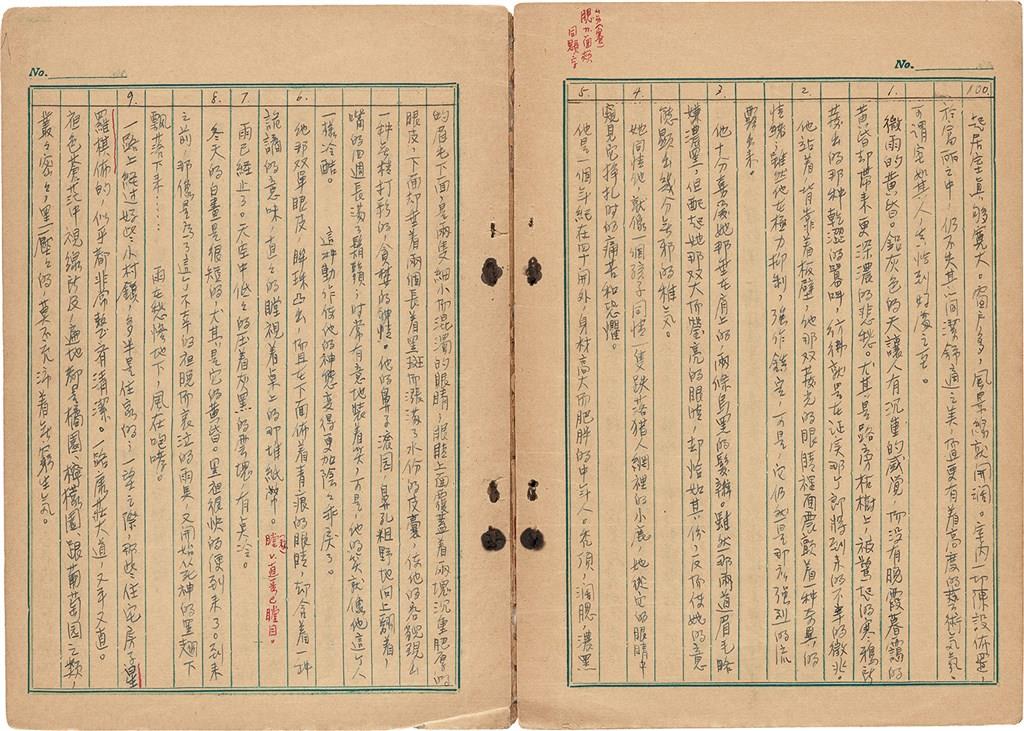 No.
100.
起居室真够寬大。窗户多,風景線就開闊。室内一切陳設佈置,
於富麗之中,仍不失其簡潔舒適之美,這更有着高度的藝術氣氛。
可謂宅如其人,恰到好處之至。
1.
微雨的黄昏。鉛灰色的天讓人有沉重的感覺,而没有晚霞暮靄的
黄昏却帶來更深濃的悲愁。尤其是路旁枯樹上,被驚起的寒鴉所
發出的那种乾澀的噐叫,彷彿就是在証实那个即將到來的不幸的徵兆。
2.
他站着,背靠着板壁,他那双發光的眼睛裡面震顫着一种奇異的
情緒,雖然他在極力抑制,強作鎮定,可是,它仍然是那麽強烈的流
露出來。
3.
他十分喜愛她那垂在肩上的兩條烏黑的髮辮。雖然那兩道眉毛略
嫌濃黑,但配起她那双大而瑩亮的眼睛,却恰如其份,反而使她的意
態顯出幾分無邪的稚氣。
4.
她同情他,就像一個孩子同情一隻跌落獵人網裡的小鹿,她從它的眼睛中
窺見它掙扎时的痛苦和恐懼。
5.
他是一個年紀在四十開外,身材高大而肥胖的中年人。禿頂,濶腮,濃黑
腮ㄙㄞ面頰
同顋字
No.
的眉毛下面,是兩隻細小而混濁的眼睛;眼睛上面覆蓋着兩塊沉重肥厚的
眼皮,下面却垂着兩個長着黑斑而漲滿了水份的皮囊,使他的容貌現出
一种無精打彩的,貪婪的神情。他的鼻子滚圓,鼻孔粗野地向上翻着,
嘴的四週長滿了鬍鬚;时常有意地裝着笑,可是,他的笑就像他這个人
一樣冷酷。
這种動作使他的神態變得更加陰々乖戾了。
6.
他那双單眼皮,眸珠凸出,而且在下面佈着青痕的眼睛,却含着一种
詭譎的意味,直々的瞠視着桌上的那堆紙幣。
瞠ㄔㄥ直垂也瞠目
7.
雨已經止了。天空中低々的压着灰黑的雲塊,有点冷。
8.
冬天的白晝是很短的,尤其是它的黄昏。黑夜很快的便到來了。到來
之前,那像是为了這个不幸的夜晚而哀泣的雨点,又開始从神的黑翅下
飄落下來……
雨在愁慘地下,風在咆哮。
9.
一路上經过好些小村鎮,多半是住家的;一望之際,那些住宅房子星
羅棋佈的,似乎都非常整齊清潔。一路康莊大道,又平又直。
夜色蒼茫中視線所及,遍地都是橘園、檸檬園跟葡萄园之類,
叢々密々,黑压压的,莫不充沛着無窮生氣。